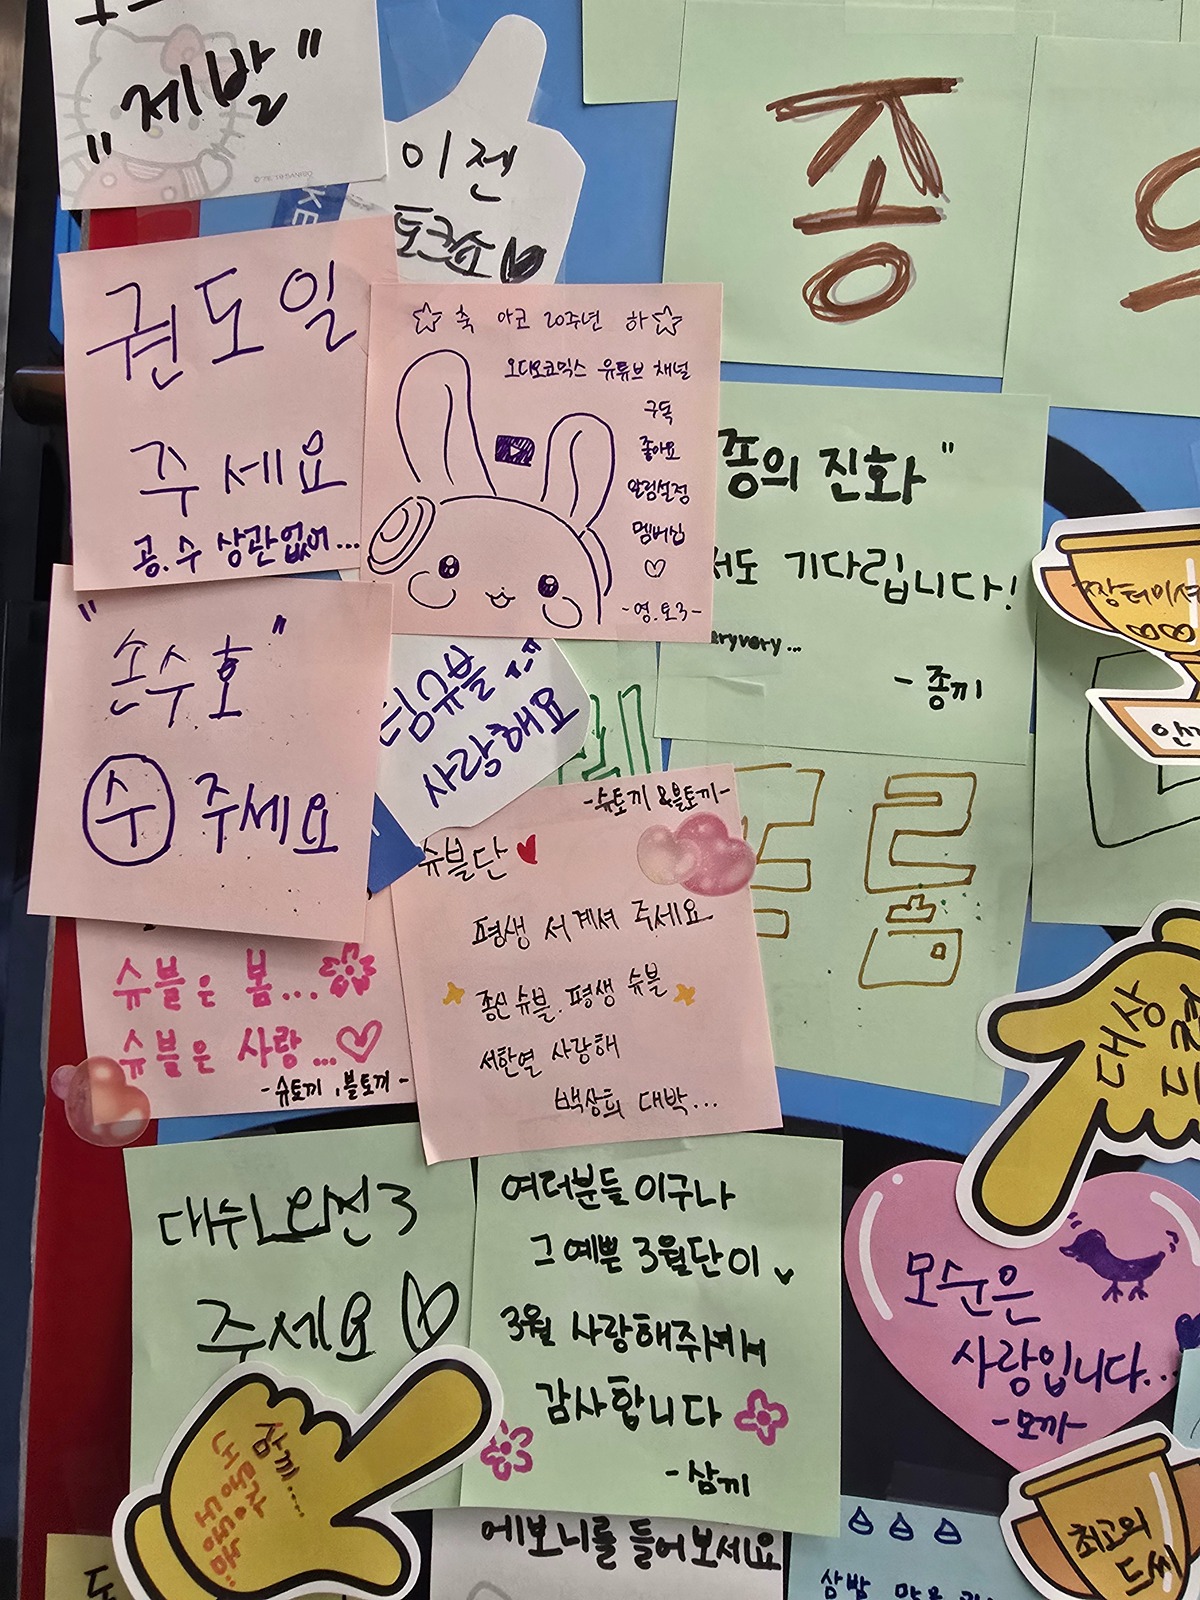 "제발"
이젠
토크쇼
종
권도일
주세요
공.수 상관없어...
축 아코 20주년 하
오디오코믹스 유튜브 채널
구독
좋아요
알림설정
멤버십
-영.토3-
종의 진화"
서도 기다립니다!
eryvery...
-종끼
"손수호"
수 주세요
팀슈블
사랑해요
-슈토끼 &블토끼-
슈블단
평생 서 계셔 주세요
종신 슈블. 평생 슈블
서한열 사랑해
백상희 대박...
슈블은 봄...
슈블은 사랑...
-슈토끼, 블토끼-
짱
름
대상
대쉬 외전3
주세요
여러분들 이구나
그 예쁜 3월단이
3월 사랑해주셔서
감사합니다
-삼끼
모순은
사랑입니다...
-모까-
삼끼....
에보니를 들어보세요
최고의
드씨